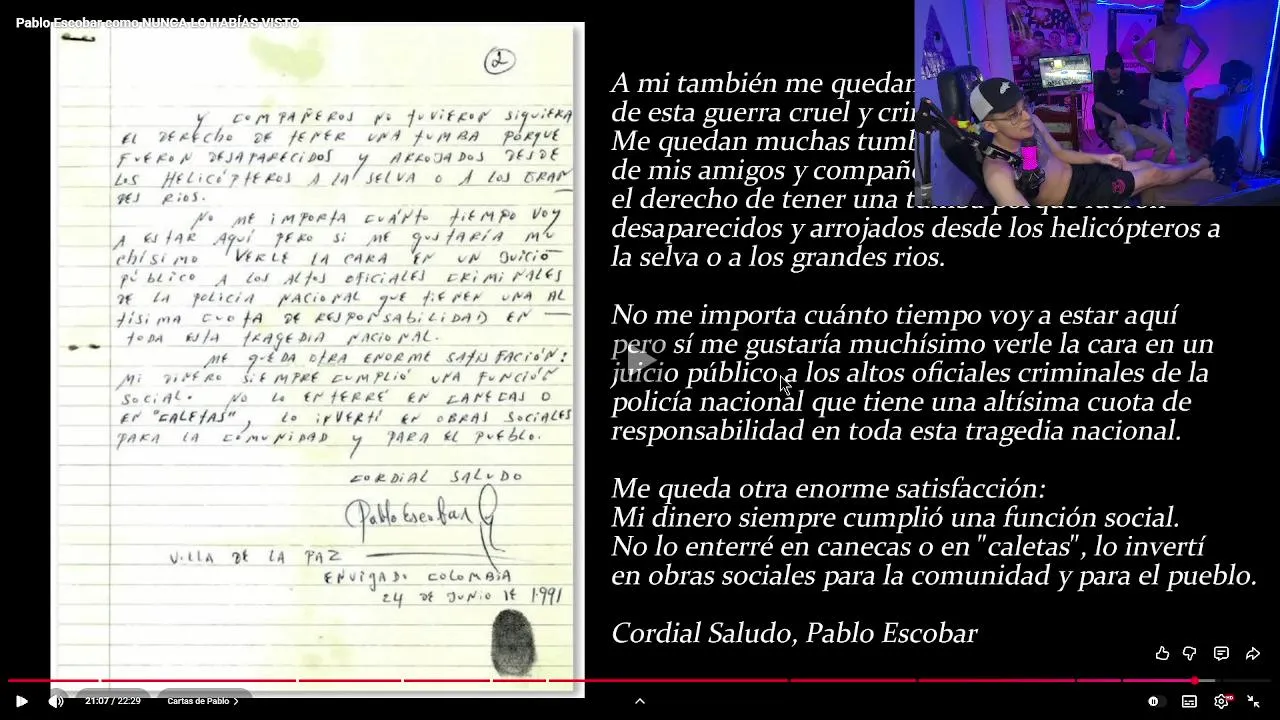 Pablo Escobar como NUNCA LO HABÍAS VISTO
2
Y COMPAÑEROS NO TUVIERON SIQUIERA
EL DERECHO DE TENER UNA TUMBA PORQUE
FUERON DESAPARECIDOS Y ARROJADOS DESDE
LOS HELICÓPTEROS A LA SELVA O A LOS GRAN
DES RIOS.
NO ME IMPORTA CUÁNTO TIEMPO VOY
A ESTAR AQUÍ PERO SI ME GUSTARÍA MU
CHÍSIMO VERLE LA CARA EN UN JUICIO
PÚBLICO A LOS ALTOS OFICIALES CRIMINALES
DE LA POLICIA NACIONAL QUE TIENEN UNA AL
TÍSIMA CUOTA DE RESPONSABILIDAD EN
TODA ESTA TRAGEDIA NACIONAL.
ME QUEDA OTRA ENORME SATISFACIÓN:
MI DINERO SIEMPRE CUMPLIÓ UNA FUNCIÓN
SOCIAL. NO LO ENTERRÉ EN CANECAS O
EN "CALETAS", LO INVERTÍ EN OBRAS SOCIALES
PARA LA COMUNIDAD Y PARA EL PUEBLO.
CORDIAL SALUDO
Pablo Escobar G
VILLA DE LA PAZ
ENVIGADO COLOMBIA
24 DE JUNIO DE 1.991
A mi también me quedan
de esta guerra cruel y
Me quedan muchas
de mis amigos y
el derecho de tener una
desaparecidos y arrojados desde los helicópteros a
la selva o a los grandes rios.
No me importa cuánto tiempo voy a estar aquí
pero sí me gustaría muchísimo verle la cara en un
juicio público a los altos oficiales criminales de la
policía nacional que tiene una altísima cuota de
responsabilidad en toda esta tragedia nacional.
Me queda otra enorme satisfacción:
Mi dinero siempre cumplió una función social.
No lo enterré en canecas o en "caletas", lo invertí
en obras sociales para la comunidad y para el pueblo.
Cordial Saludo, Pablo Escobar
21:07 / 22:29
Cartas de Pablo